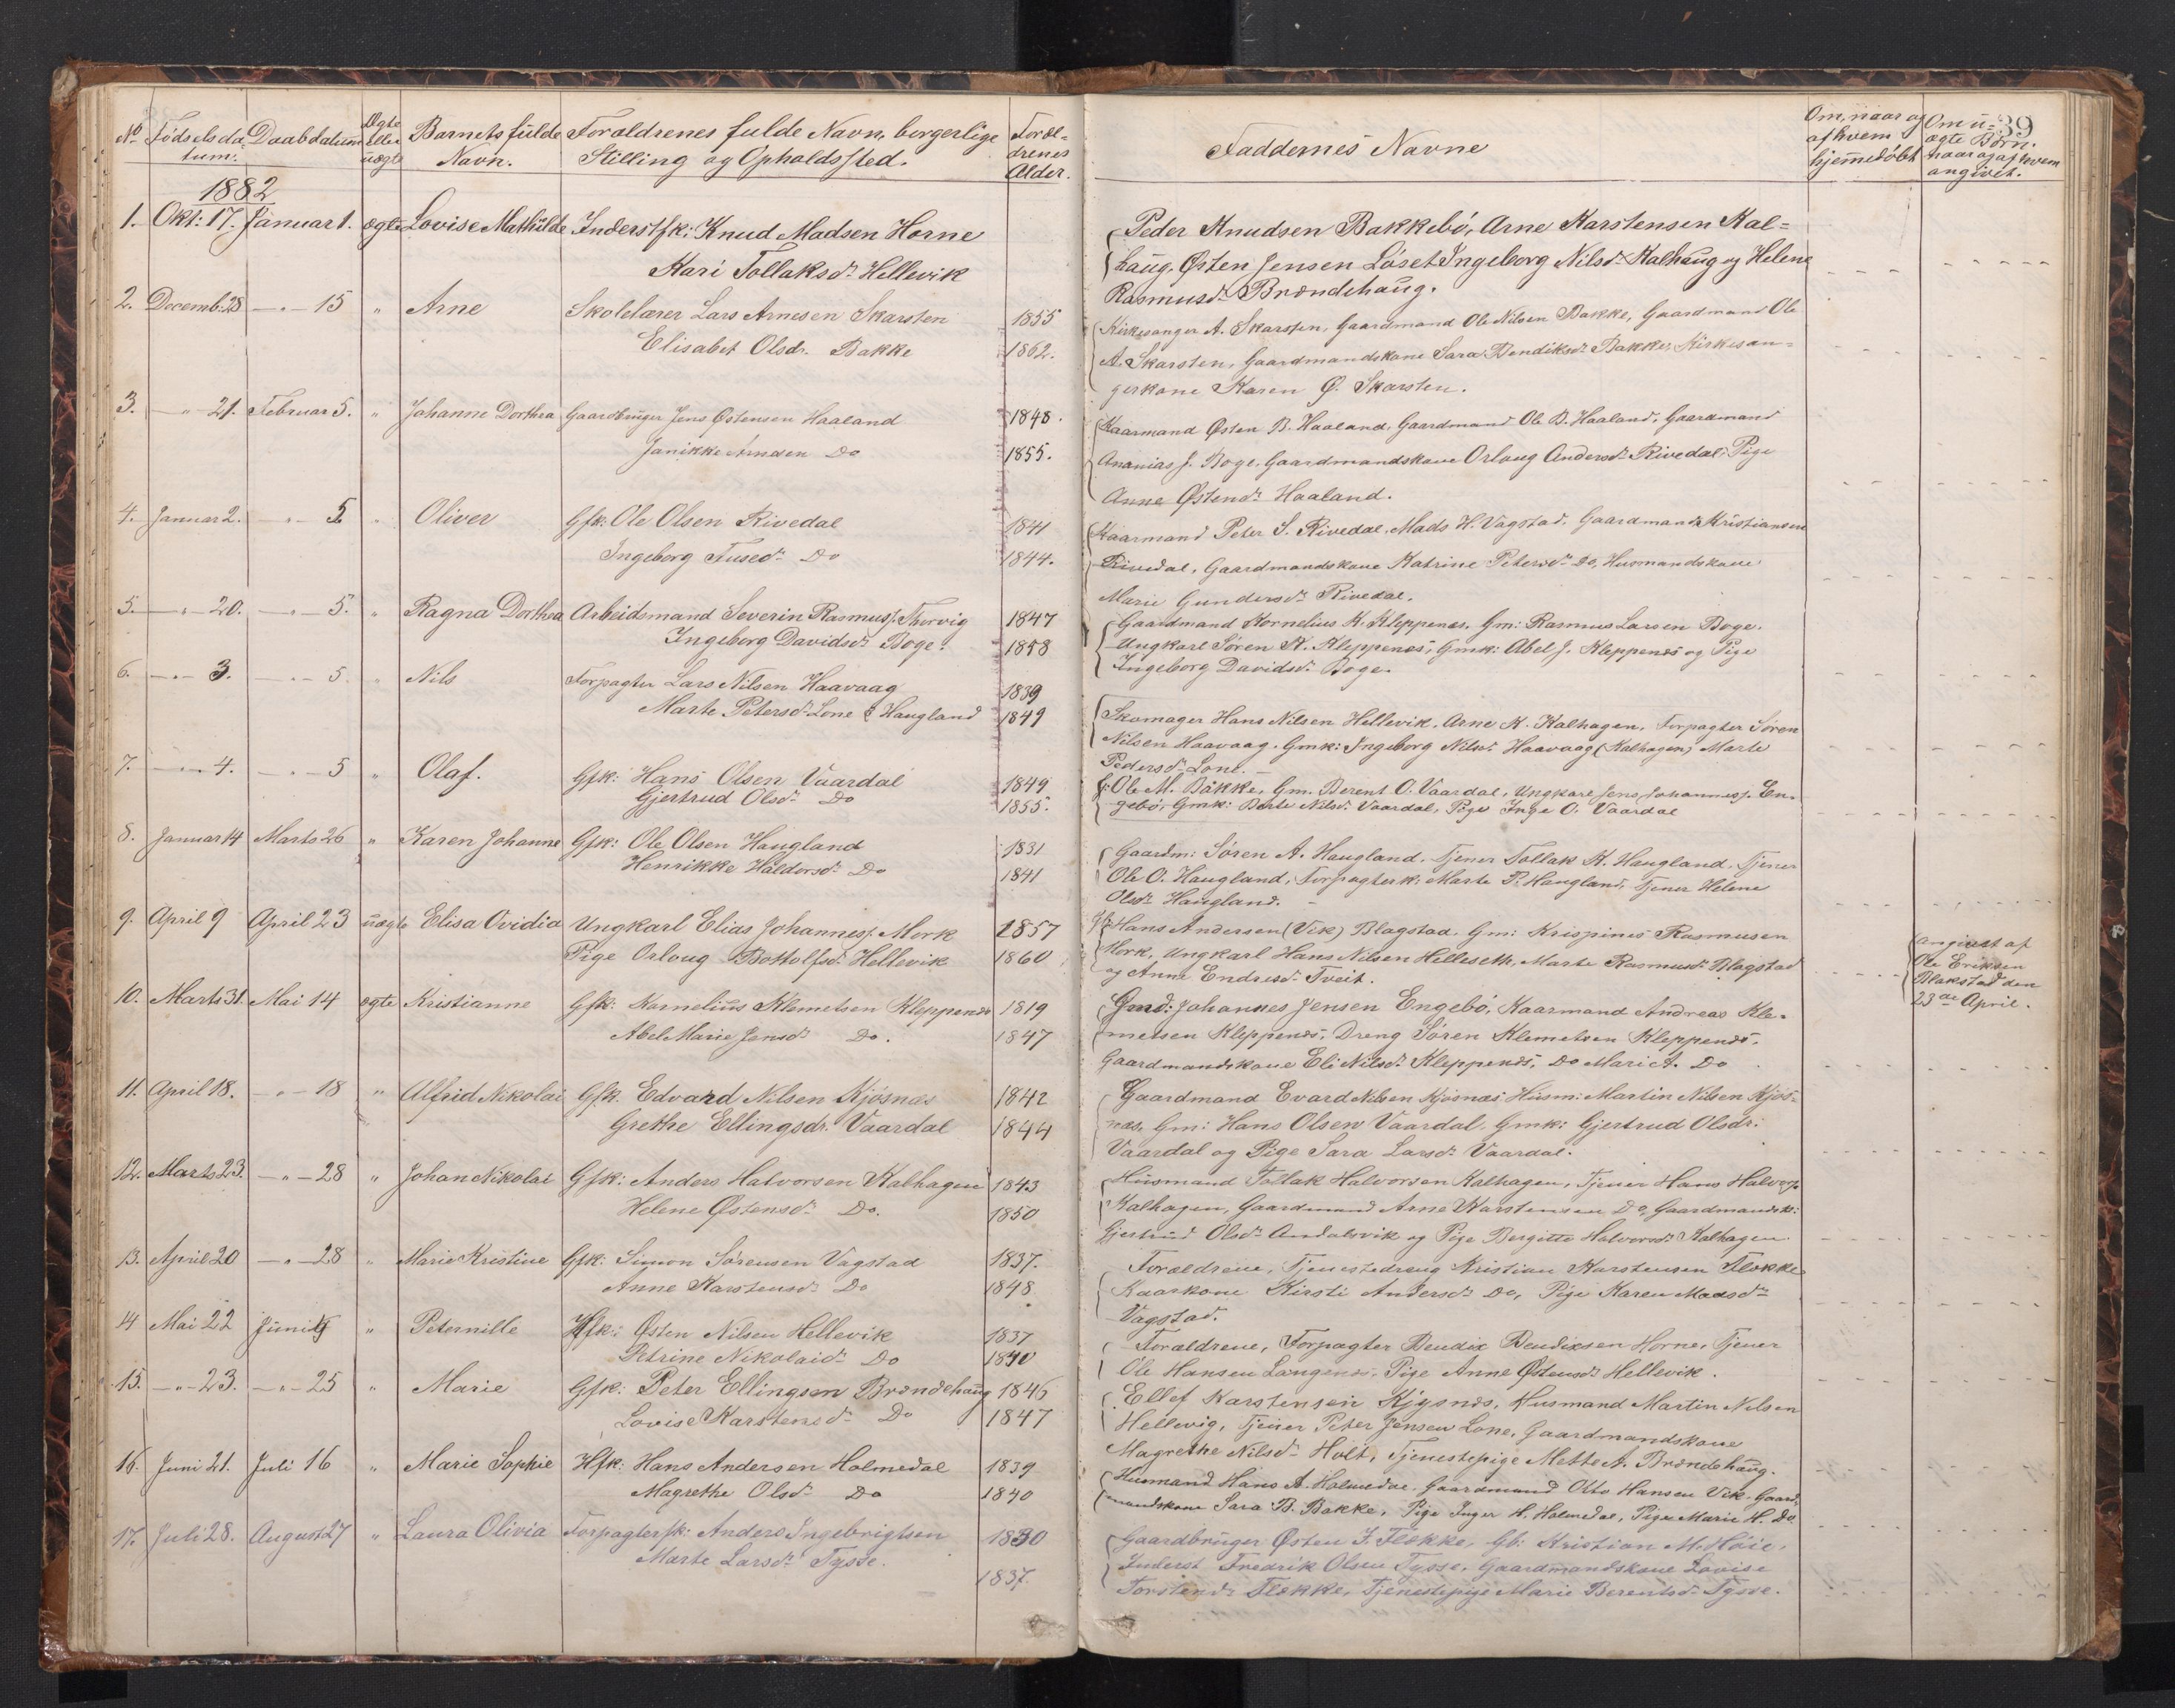 39
No Fødselsda- Daabdatum Ægte Barnets fulde Forældrenes fulde Navn, borgerlige Foræl-
tum. eller Navn. Stilling og Opholdssted. drenes
uægte Alder.
Faddernes Navne
Om, naar og
af hvem
hjemmedøbt
Om u-
ægte Børn.
naar og af hvem
angivet.
1882
1. Okt: 17. Januar 1. ægte Lovise Mathilde Inderstfk: Knud Madsen Horne
Kari Tollaksdr Hellevik
Peder Knudsen Bakkebø, Arne Karstensen Kal-
haug, Østen Jensen Løset Ingeborg Nilsdr Kalhaug og Helene
Rasmusdr Brændehaug.
2. Decemb: 28 —"— 15 " Arne Skolelærer Lars Arnesen Skarsten 1855
Elisabet Olsdr. Bakke 1862.
Kirkesanger A. Skarsten, Gaardmand Ole Nilsen Bakke, Gaardmand Ole
A. Skarsten, Gaardmandskone Sara Bendiksdr Bakke, Kirkesan-
gerkone Karen Ø. Skarsten.
3. —"— 21. Februar 5. " Johanne Dorthea Gaardbruger Jens Østensen Haaland 1848.
Janikke Arndsen Do 1855.
Kaarmand Østen B. Haaland, Gaardmand Ole B. Haaland, Gaardmand
Ananias J. Boge, Gaardmandskone Orloug Andersdr Rivedal, Pige
Anne Østensdr Haaland.
4. Januar 2. —"— 5 " Oliver Gfk: Ole Olsen Rivedal 1841
Ingeborg Tusedr Do 1844.
Kaarmand Peter S. Rivedal, Mads H. Vagstad, Gaardmand Kristiansen
Rivedal, Gaardmandskone Katrine Petersdr Do, Husmandskone
Marie Gundersdr Rivedal.
5. —"— 20. —"— 5. " Ragna Dorthea Arbeidsmand Severin Rasmuss. Thorvig 1847
Ingeborg Davidsdr Boge. 1858
Gaardmand Kornelius K. Kleppenes, Gm: Rasmus Larsen Boge.
Ungkarl Søren K. Kleppenes, Gmk: Abel J. Kleppenes og Pige
Ingeborg Davidsdr Boge.
6. —"— 3. —"— 5. " Nils Forpagter Lars Nilsen Haavaag 1839
Marte Petersdr Lone & Haugland 1849
Skomager Hans Nilsen Hellevik, Arne K. Kalhagen, Forpagter Søren
Nilsen Haavaag. Gmk: Ingeborg Nilsdr Haavaag (Kalhagen) Marte
Pedersdr Lone.
7. —"— 4. —"— 5 " Olaf. Gfk: Hans Olsen Vaardal 1849
Gjertrud Olsdr Do 1855.
G: Ole M. Bakke, Gm. Berent O. Vaardal, Ungkarl Jens Johanness. En-
gebø, Gmk: Berte Nilsdr Vaardal, Pige Inga O. Vaardal
8. Januar 14 Marts 26 " Karen Johanne Gfk: Ole Olsen Haugland 1831
Henrikke Haldorsdr Do 1841
Gaardm: Søren A. Haugland, Tjener Tollak K. Haugland, Tjener
Ole O. Haugland, Forpagterk: Marte P. Haugland, Tjener Helene
Olsdr Haugland.
9. April 9 April 23 uægte Elisa Ovidia Ungkarl Elias Johanness. Mork 1857
Pige Orloug Bottolfsdr Hellevik 1860
Hans Andersen (Vik) Blagstad. Gm: Krispinus Rasmusen
Mork, Ungkarl Hans Nilsen Helleseth, Marte Rasmusdr Blagstad
og Anna Endresdr Tveit.
angivet af
Ole Eriksen
Blakstad den
23de April.
10. Marts 31. Mai 14 ægte Kristianne Gfk: Kornelius Klemetsen Kleppenes 1819
Abel Marie Jensdr Do. 1847
Gmd: Johannes Jensen Engebø, Kaarmand Andreas Kle-
metsen Kleppenes, Dreng Søren Klemetsen Kleppenes,
Gaardmandskone Eli Nilsdr Kleppenes, Do Mari A. Do
11. April 18. —"— 18 " Alfrid Nikolai Gfk. Edvard Nilsen Kjøsnæs 1842
Grethe Ellingsdr. Vaardal 1844
Gaardmand Evard Nilsen Kjøsnæs Husm: Martin Nilsen Kjøs-
næs, Gm: Hans Olsen Vaardal, Gmk: Gjertrud Olsdr:
Vaardal og Pige Sara Larsdr Vaardal.
12. Marts 23. —"— 28 " Johan Nikolai Gfk: Anders Halvorsen Kalhagen 1843
Helene Østensdr Do. 1850
Husmand Tollak Halvorsen Kalhagen, Tjener Hans Halvors.
Kalhagen, Gaardmand Arne Karstensen Do, Gaardmandsk:
Gjertrud Olsdr Andalsvik og Pige Bergitte Halvorsdr Kalhagen.
13. April 20 —"— 28 " Marie Kristine Gfk: Simon Sørensen Vagstad 1837.
Anne Karstensdr Do 1848
Forældrene, Tjenestedreng Kristian Karstensen Flokke
Kaarkone Kirsti Andersdr Do, Pige Karen Madsdr
Vagstad.
14 Mai 22 Juni " Peternille Hfk: Østen Nilsen Hellevik 1837
Petrine Nikolaidr Do 1840
Forældrene, Forpagter Bendix Bendixsen Horne, Tjener
Ole Hansen Langenes, Pige Anne Østensdr Hellevik.
15. —"— 23. —"— 25 " Marie Gfk: Peter Ellingsen Brændehaug 1846
Lovise Karstensdr Do 1847
Ellef Karstensen Kjysnes, Husmand Martin Nilsen
Hellevig, Tjener Peter Jensen Lone, Gaardmandskone
Magrethe Nilsdr Holt, Tjenestepige Mette A. Brændehaug.
16. Juni 21. Juli 16 " Marie Sophie Hfk: Hans Andersen Holmedal 1839
Magrethe Olsdr Do 1840
Husmand Hans A. Holmedal, Gaardmand Otto Hansen Vik, Gaard-
mandskone Sara B. Bakke, Pige Inger H. Holmedal, Pige Marie H. Do.
17. Juli 28. August 27 " Laura Olivia Forpagterfk: Anders Ingebrigtsen 1830
Marte Larsdr Tysse. 1837.
Gaardbruger Østen J. Flekke, Gb: Kristian M. Høie,
Inderst Fredrik Olsen Tysse, Gaardmandskone Lovise
Torstensdr Flekke, Tjenestepige Marie Berentsdr Tysse.